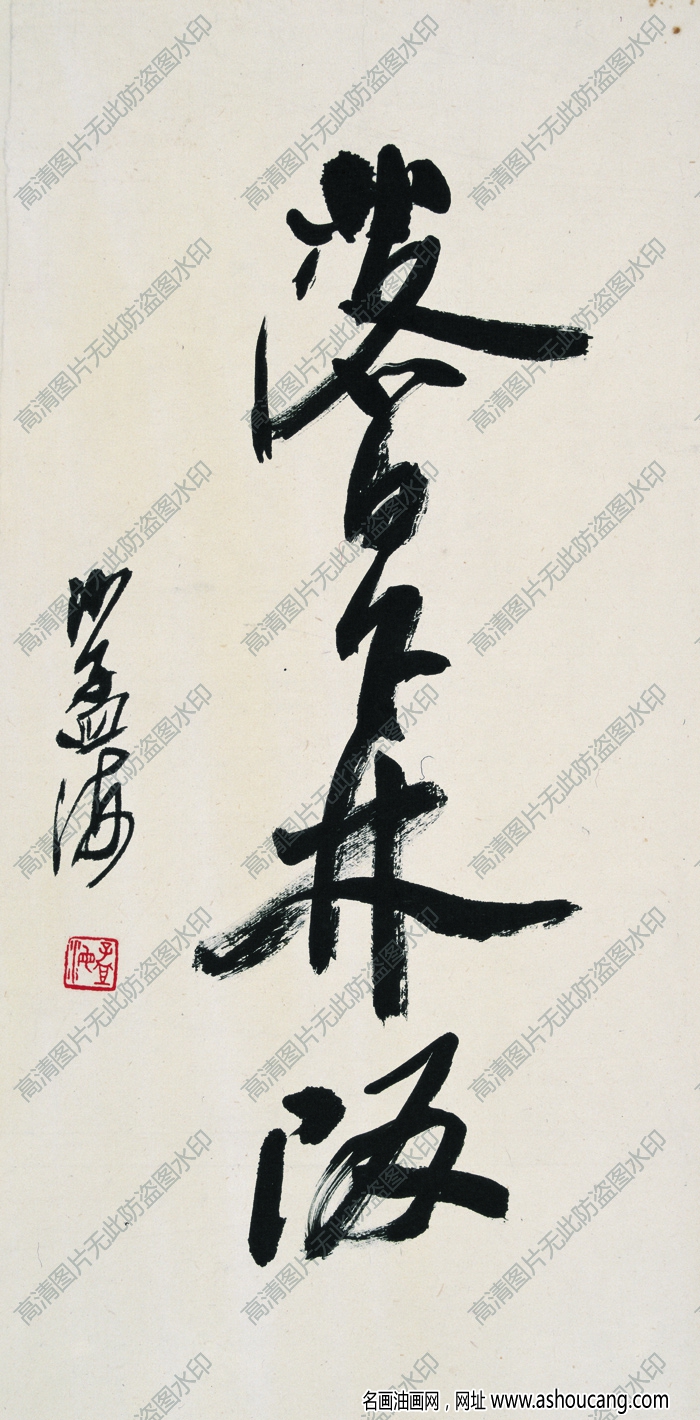 下井阪
沙孟海
孟海
高清图片无此防盗图水印
名画油画网，网址 www.ashoucang.com